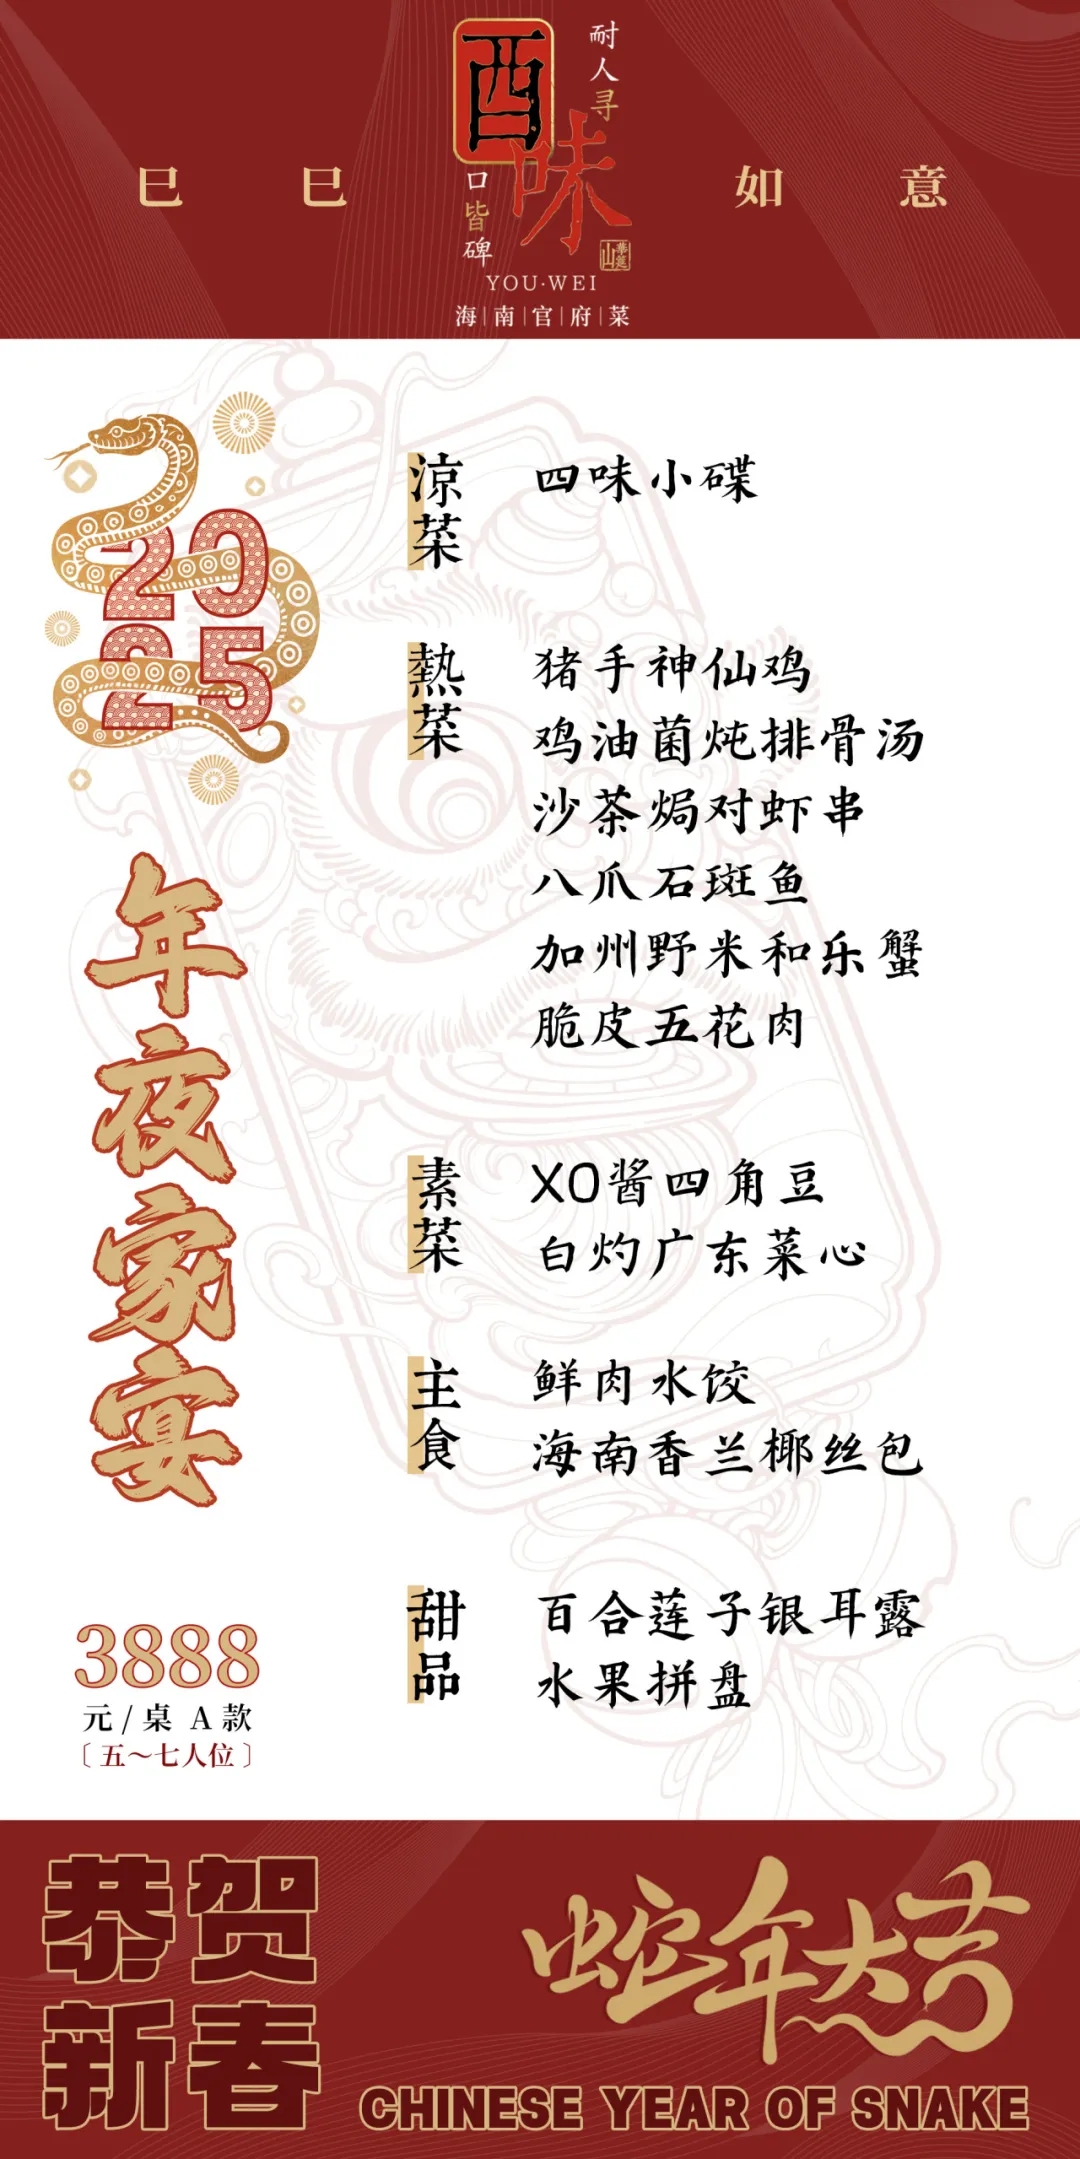 巳巳如意
酉味
耐人寻
口皆碑
華莚山
YOU·WEI
海|南|官|府|菜
2025
年夜家宴
3888
元/桌 A款
〔五～七人位〕
涼菜
四味小碟
熱菜
猪手神仙鸡
鸡油菌炖排骨汤
沙茶焗对虾串
八爪石斑鱼
加州野米和乐蟹
脆皮五花肉
素菜
XO酱四角豆
白灼广东菜心
主食
鲜肉水饺
海南香兰椰丝包
甜品
百合莲子银耳露
水果拼盘
恭贺
新春
蛇年大吉
CHINESE YEAR OF SNAKE